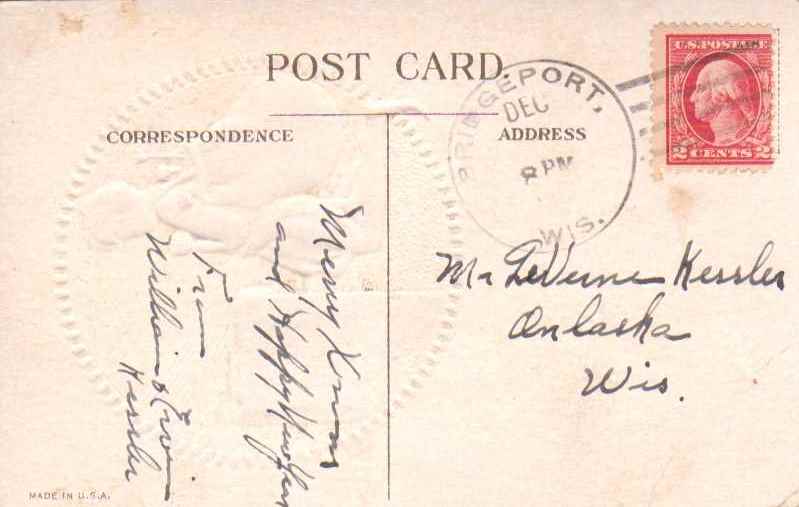 POST CARD.
CORRESPONDENCE
ADDRESS
BRIDGEPORT,
DEC
8 PM
WIS.
U.S. POSTAGE
2 CENTS 2
Merry Xmas
and Happy New Year
From
William & Ervin
Kessler
Mr LeVerne Kessler
Onlaska
Wis.
MADE IN U.S.A.